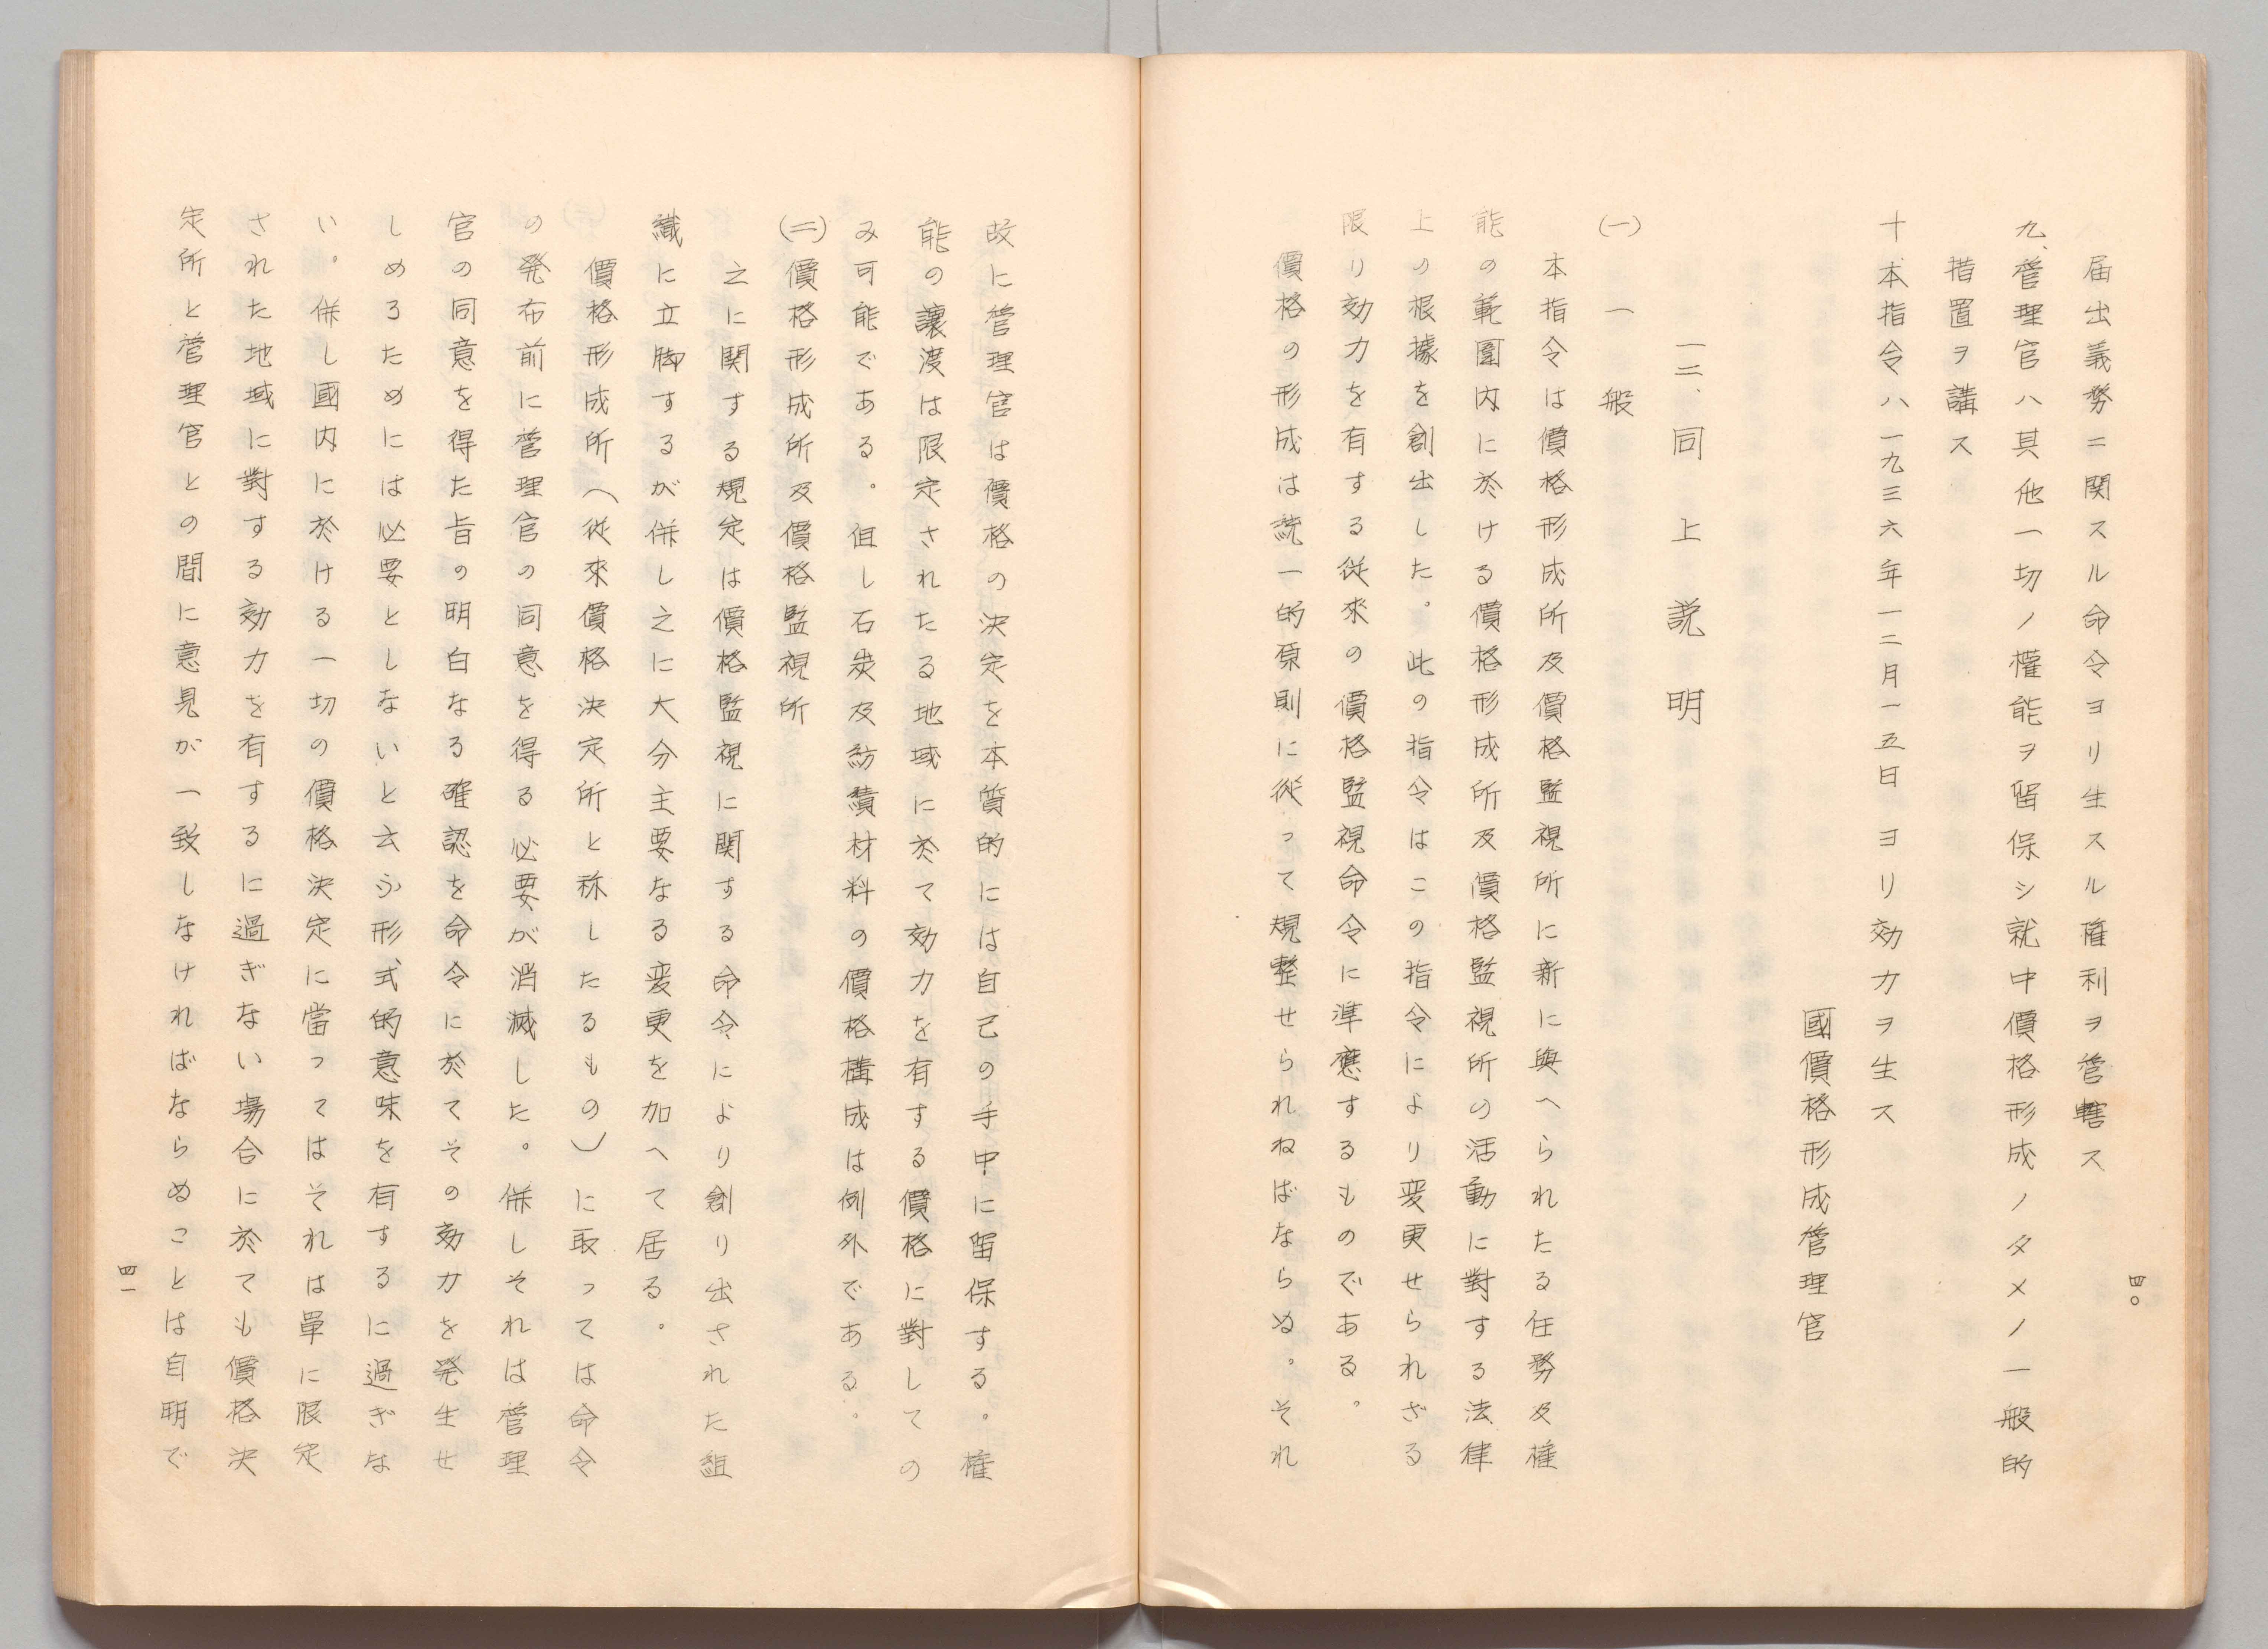 届出義務ニ関スル命令ヨリ生スル権利ヲ管轄ス
九、管理官ハ其他一切ノ権能ヲ留保シ就中價格形成ノタメノ一般的
措置ヲ講ス
十、本指令ハ一九三六年一二月一五日ヨリ効力ヲ生ス
國價格形成管理官
一二、同上説明
(一)一般
本指令は價格形成所及價格監視所に新に與へられたる任務及権
能の範圍内に於ける價格形成所及價格監視所の活動に對する法律
上の根據を創出した。此の指令はこの指令により変更せられざる
限り効力を有する従來の價格監視命令に準應するものである。
價格の形成は統一的原則に従って規整せられねばならぬ。それ
四〇
故に管理官は價格の決定を本質的には自己の手中に留保する。権
能の讓渡は限定されたる地域に於て効力を有する價格に對しての
み可能である。但し石炭及紡績材料の價格構成は例外である。
(二)價格形成所及價格監視所
之に関する規定は價格監視に関する命令により創り出された組
織に立脚するが併し之に大分主要なる変更を加へて居る。
價格形成所(従來價格決定所と称したるもの)に取っては命令
の発布前に管理官の同意を得る必要が消滅した。併しそれは管理
官の同意を得た旨の明白なる確認を命令に於てその効力を発生せ
しめるためには必要としないと云ふ形式的意味を有するに過ぎな
い。併し國内に於ける一切の價格決定に當ってはそれは單に限定
された地域に對する効力を有するに過ぎない場合に於ても價格決
定所と管理官との間に意見が一致しなければならぬことは自明で
四一